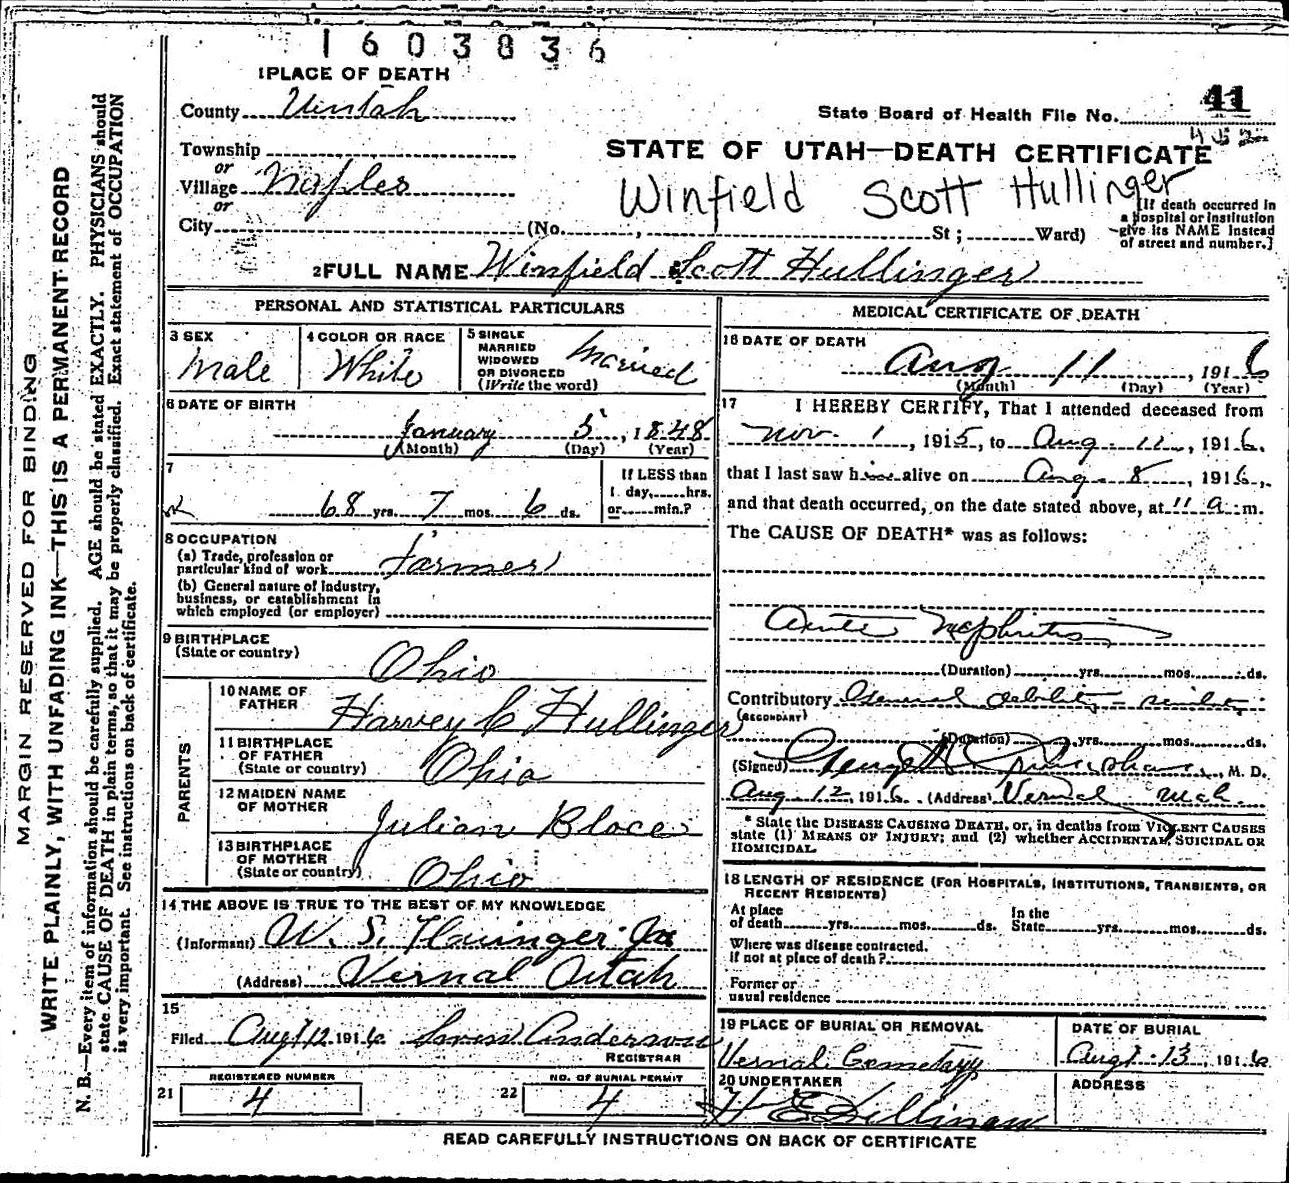 1603836
1 PLACE OF DEATH
County Uintah
State Board of Health File No. 41
452
Township
or
Village Naples
or
City
STATE OF UTAH—DEATH CERTIFICATE
Winfield Scott Hullinger
(No. , St; Ward)
[If death occurred in a hospital or institution give its NAME instead of street and number.]
2 FULL NAME Winfield Scott Hullinger
PERSONAL AND STATISTICAL PARTICULARS
3 SEX
Male
4 COLOR OR RACE
White
5 SINGLE
MARRIED
WIDOWED
OR DIVORCED
(Write the word)
Married
6 DATE OF BIRTH
January 5, 1848
(Month) (Day) (Year)
7
68 yrs. 7 mos. 6 ds.
If LESS than
1 day, hrs.
or min.?
8 OCCUPATION
(a) Trade, profession or
particular kind of work Farmer
(b) General nature of industry,
business, or establishment in
which employed (or employer)
9 BIRTHPLACE
(State or country)
Ohio
PARENTS
10 NAME OF
FATHER
Harvey C Hullinger
11 BIRTHPLACE
OF FATHER
(State or country)
Ohio
12 MAIDEN NAME
OF MOTHER
Julian Bloce
13 BIRTHPLACE
OF MOTHER
(State or country)
Ohio
14 THE ABOVE IS TRUE TO THE BEST OF MY KNOWLEDGE
(Informant) W. S. Hullinger Jr.
(Address) Vernal Utah
15
Filed Aug 12 1916 Anderson
REGISTRAR
REGISTERED NUMBER
21 4
NO. OF BURIAL PERMIT
22 4
MEDICAL CERTIFICATE OF DEATH
16 DATE OF DEATH
Aug 11, 1916
(Month) (Day) (Year)
17 I HEREBY CERTIFY, That I attended deceased from
Nov. 1, 1915, to Aug. 11, 1916,
that I last saw him alive on Aug. 8, 1916,
and that death occurred, on the date stated above, at 11 a m.
The CAUSE OF DEATH* was as follows:
Acute Nephritis
(Duration) yrs. mos. ds.
Contributory General debility -
(SECONDARY)
(Duration) yrs. mos. ds.
(Signed) George , M. D.
Aug 12, 1916. (Address) Vernal Utah.
* State the DISEASE CAUSING DEATH, or, in deaths from VIOLENT CAUSES
state (1) MEANS OF INJURY; and (2) whether ACCIDENTAL, SUICIDAL OR
HOMICIDAL.
18 LENGTH OF RESIDENCE (FOR HOSPITALS, INSTITUTIONS, TRANSIENTS, OR
RECENT RESIDENTS)
At place
of death yrs. mos. ds.
In the
State yrs. mos. ds.
Where was disease contracted,
if not at place of death?
Former or
usual residence
19 PLACE OF BURIAL OR REMOVAL
Vernal Cemetary
DATE OF BURIAL
Aug 13, 1916
20 UNDERTAKER
H E
ADDRESS
READ CAREFULLY INSTRUCTIONS ON BACK OF CERTIFICATE
MARGIN RESERVED FOR BINDING
WRITE PLAINLY, WITH UNFADING INK—THIS IS A PERMANENT RECORD
N. B.—Every item of information should be carefully supplied. AGE should be stated EXACTLY. PHYSICIANS should
state CAUSE OF DEATH in plain terms, so that it may be properly classified. Exact statement of OCCUPATION
is very important. See instructions on back of certificate.